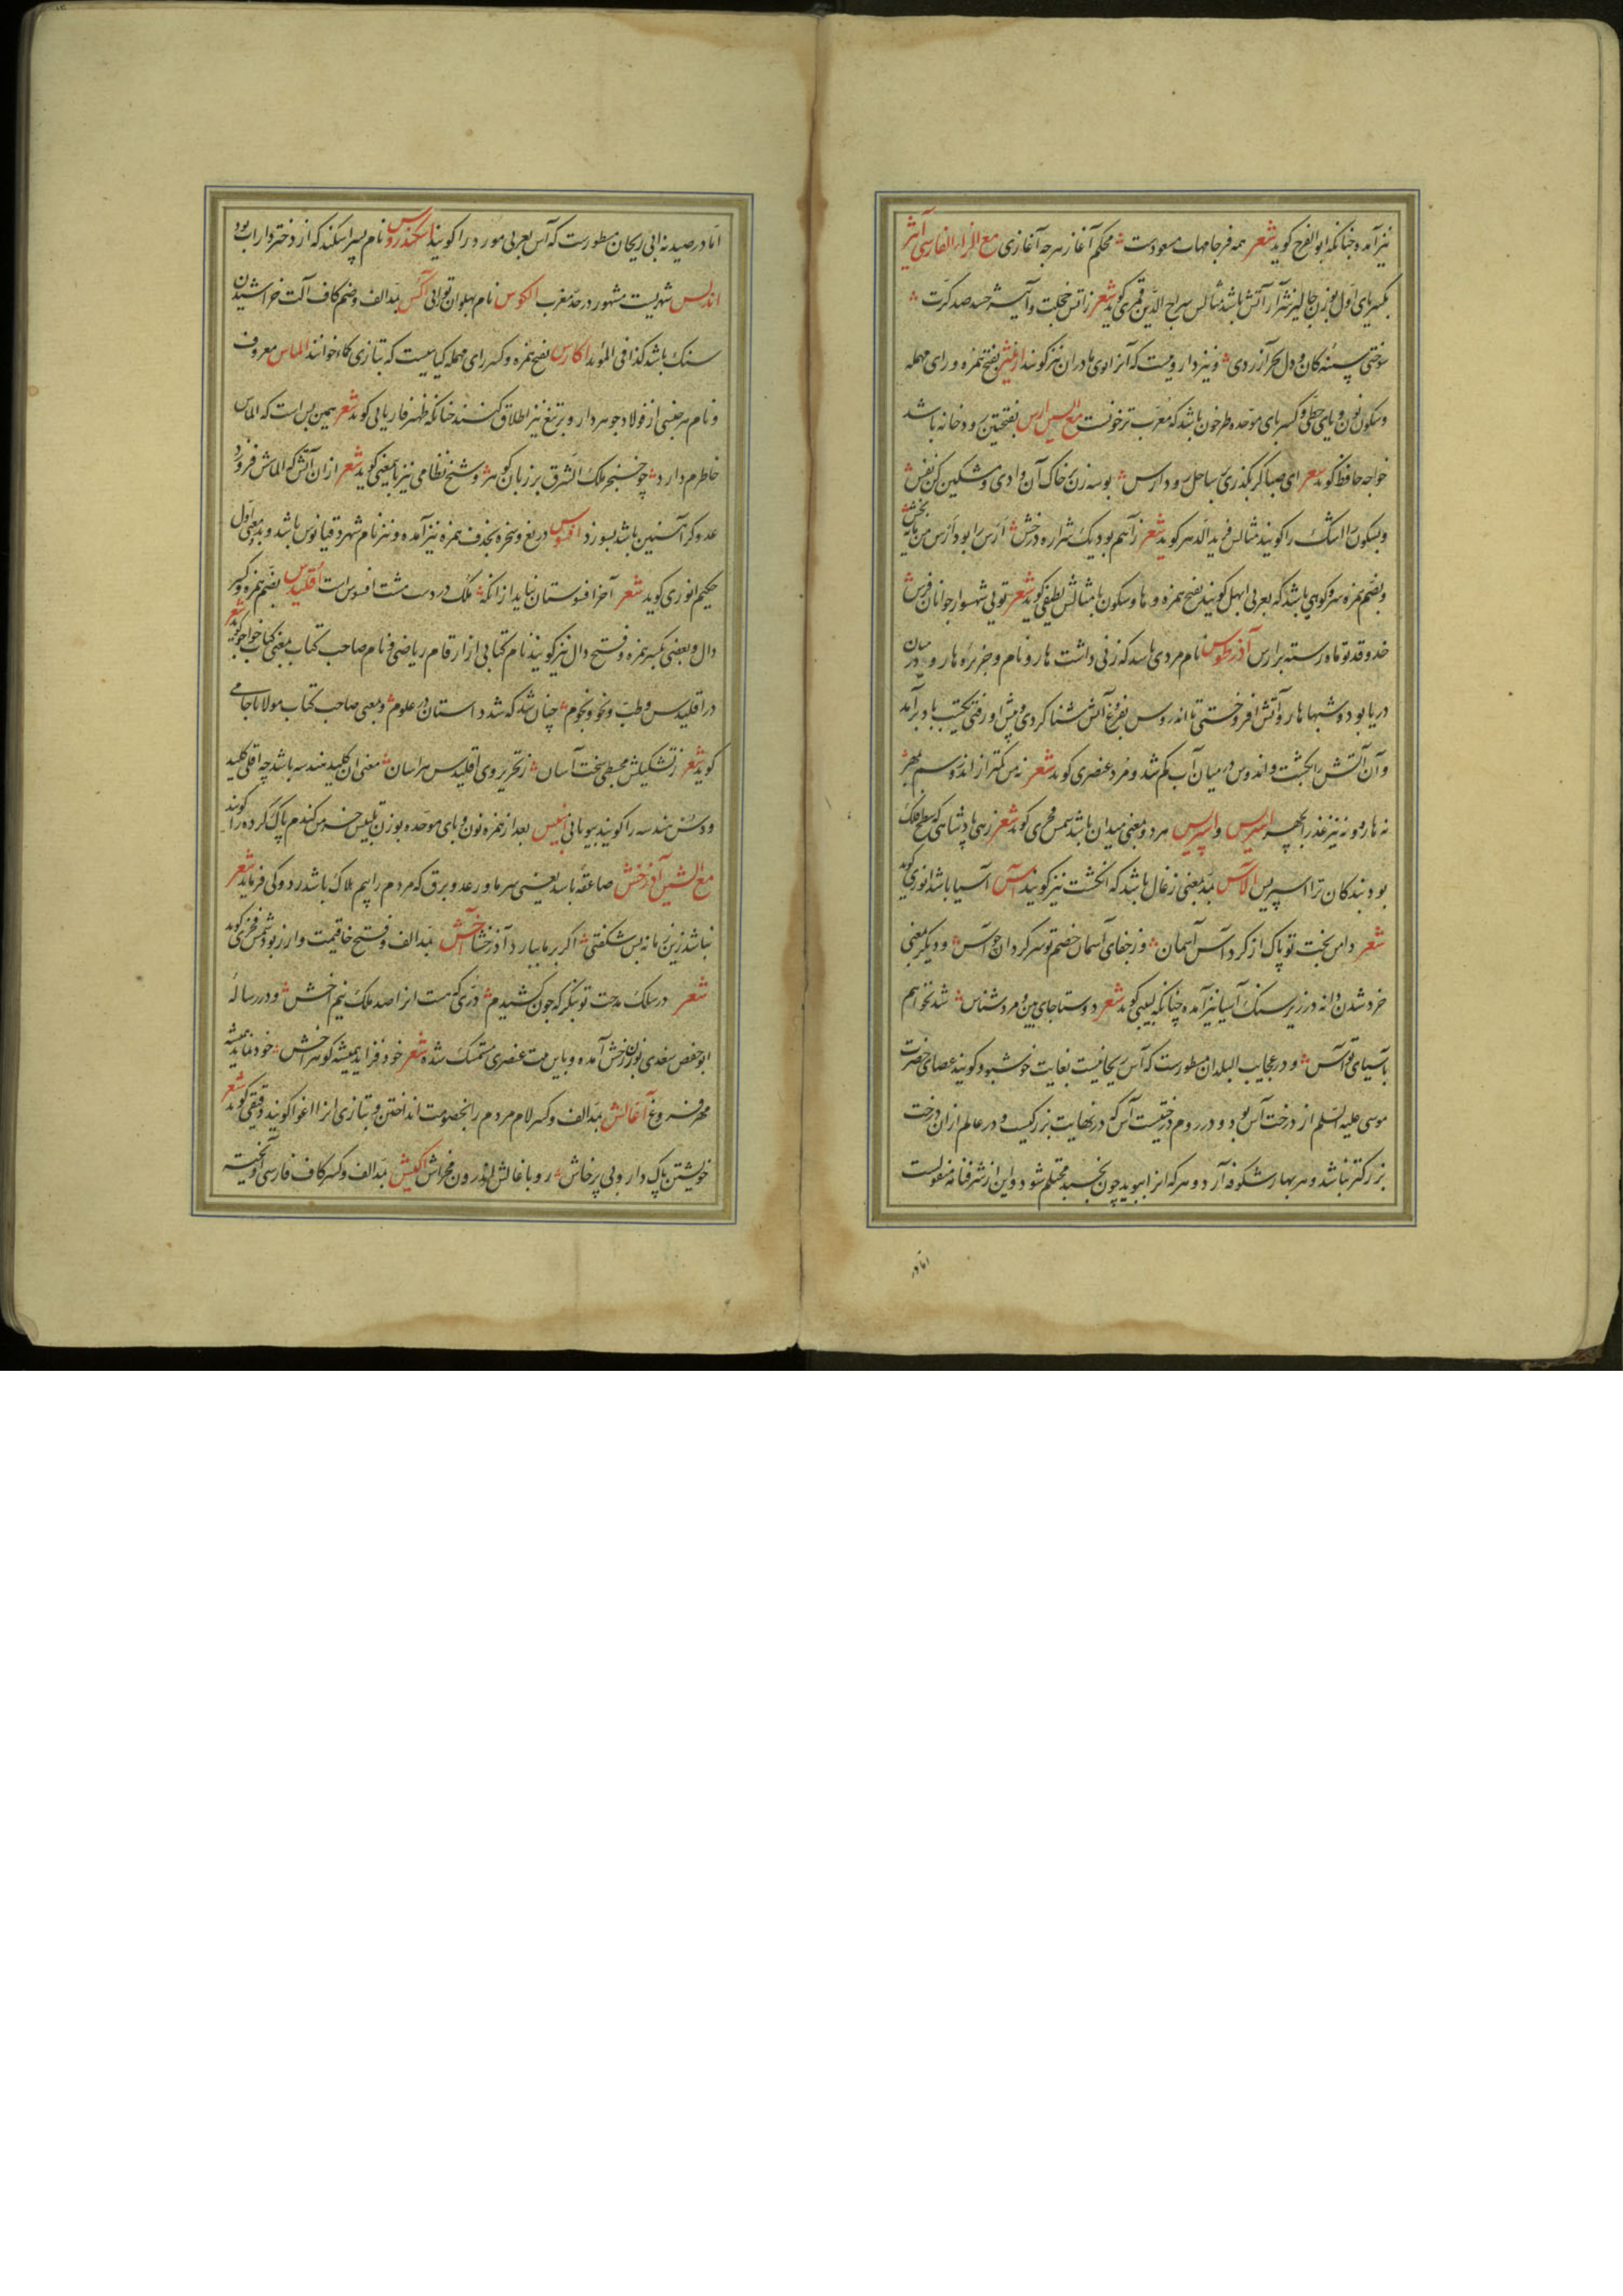 نیز آمده چنانکه ابوالفرج کوید شعر همه فرجامهات مسعودست محکم آغاز هرچه آغازی مع الزاء الفارسی آییژ
بکسر یای اول بوزن جالیز شرار آتش باشد مثالش سراج الدین قمری کوید شعر زاتش خجلت و آییژ حسد صد کرت
سوختی سینه کان و دل بحر آزردی و نیز دارویست که آنرا بوی مادران نیز کویند ارنبیژ بفتح همزه و رای مهمله
و سکون نون و یای حطی و کسر بای موحده طرخون باشد که معرب ترخونست مع السین ارس بفتحتین رودخانه باشد
خواجه حافظ کوید شعر ای صبا کر بگذری بر ساحل رود ارس بوسه زن بر خاک آن وادی و مشکین کن نفس
و بسکون را اشک را کویند مثالش فرید الدهر کوید شعر ز آهم بود یک شراره درخش ارس را بود ارس من مایه بخش
و بضم همزه سرو کوهی باشد که بعربی ابهل کویند بفتح همزه و ها و سکون با مثالش لطیفی کوید شعر تویی شهسوار جوانان فرس
خد و قد تو ماه رسته بر ارس آذرطوس نام مردی باشد که زنی داشت هارو نام و جزیره هارو در میان
دریا بود و شبها هارو آتش افروختی تا اندروس بفروغ آتش شنا کردی و پیش او رفتی یکشب باد برآمد
و آن آتش را بکشت و اندروس در میان آب کم شد و مرد عنصری کوید شعر نه من کمتر از اندروسم بمهر
نه هارو نه نیز عذرا بچهر اسپرس و اسپریس هر دو بمعنی میدان باشد شمس فخری کوید شعر زهی پادشاهی که سطح فلک
بود بندکان ترا اسپریس آلاس بمد بمعنی زغال باشد که انکشت نیز کویند آس آسیا باشد انوری کوید
شعر دامن بخت تو پاک از کرد آس آسمان وز جفای آسمان خصم تو سرکردان چو آس و دیکر بمعنی
خرد شدن دانه در زیر سنک آسیا نیز آمده چنانکه لبیبی کوید شعر دوستا جای بین و مرد شناس شد نخواهم
بآسیای تو آس و در عجایب البلدان مسطورست که آس ریحانیست بغایت خوشبو و کویند عصای حضرت
موسی علیه السلم از درخت آس بود و در روم درختیست آس که در نهایت بزرکیست و در عالم ازان درخت
بزرکتر نباشد و هر بهار شکوفه آرد و هر که انرا ببوید چون بخسبد محتلم شود و این از شرفنامه منقولست
اما در
اما در صیدنه ابی ریحان مسطورست که آس بعربی مورد را کویند اسکندروس نام پسر اسکندر که از دختر داراب بود
اندلس شهریست مشهور در حد مغرب الکوس نام پهلوان تورانی آکس بمد الف و ضم کاف آلت خراشیدن
سنک باشد کذا فی المؤید اکارس بفتح همزه و کسر رای مهمله کیاهیست که بتازی کماه خوانند الماس معروف
و نام هر جنسی از فولاد جوهردار و بر تیغ نیز اطلاق کنند چنانکه ظهیر فاریابی کوید شعر همین بس است که الماس
خاطرم دارد چو خنجر ملک الشرق بر زبان کوهر و شیخ نظامی نیز باین معنی کوید شعر ازان آتش که الماسش فروزد
عدو کر آهنین باشد بسوزد افسوس دریغ و سخره بحذف همزه نیز آمده و نیز نام شهر دقیانوس باشد و بمعنی اول
حکیم انوری کوید شعر آخر افسوستان نیاید ازانکه ملک در دست مشت افسوس است اقلیدس بضم همزه و کسر
دال و بعضی بکسر همزه و فتح دال نیز کویند نام کتابی از ارقام ریاضی و نام صاحب کتاب بمعنی کتاب خواجو کوید شعر
در اقلیدس و طب و نحو و نجوم چنان شد که شد داستان در علوم و بمعنی صاحب کتاب مولانا جامی
کوید شعر ز تشکیلش مجسطی سخت آسان ز تحریر وی اقلیدس هراسان معنی ان کلید هندسه باشد چه اقلی کلید
و دس هندسه را کویند بیونانی انبیس بعد از همزه نون و بای موحده بوزن تلبیس خرمن کندم پاک کرده را کویند
مع الشین آذرخش صاعقه باشد یعنی سرما و رعد و برق که مردم را بیم هلاک باشد رودکی فرماید شعر
نباشد زین زمانه بس شکفتی اکر بر ما ببارد آذرخشا آخش بمد الف و فتح خا قیمت و ارز بود شمس فخری کوید
شعر در سلک مدحت تو بنکر که چون کشیدم دری که هست انرا صد ملک نیم آخش و در رساله
ابو حفص سغدی بوزن رخش آمده و باین بیت عنصری متمسک شده شعر خود فزاید همیشه کوهر اخش خود نماید همیشه
مهر فروغ آغالش بمد الف و کسر لام مردم را بخصومت انداختن و بتازی انرا اغوا کویند دقیقی کوید شعر
خویشتن پاک دار و بی پرخاش رو باغالش اندرون مخراش آکیش بمد الف و کسر کاف فارسی آویخته